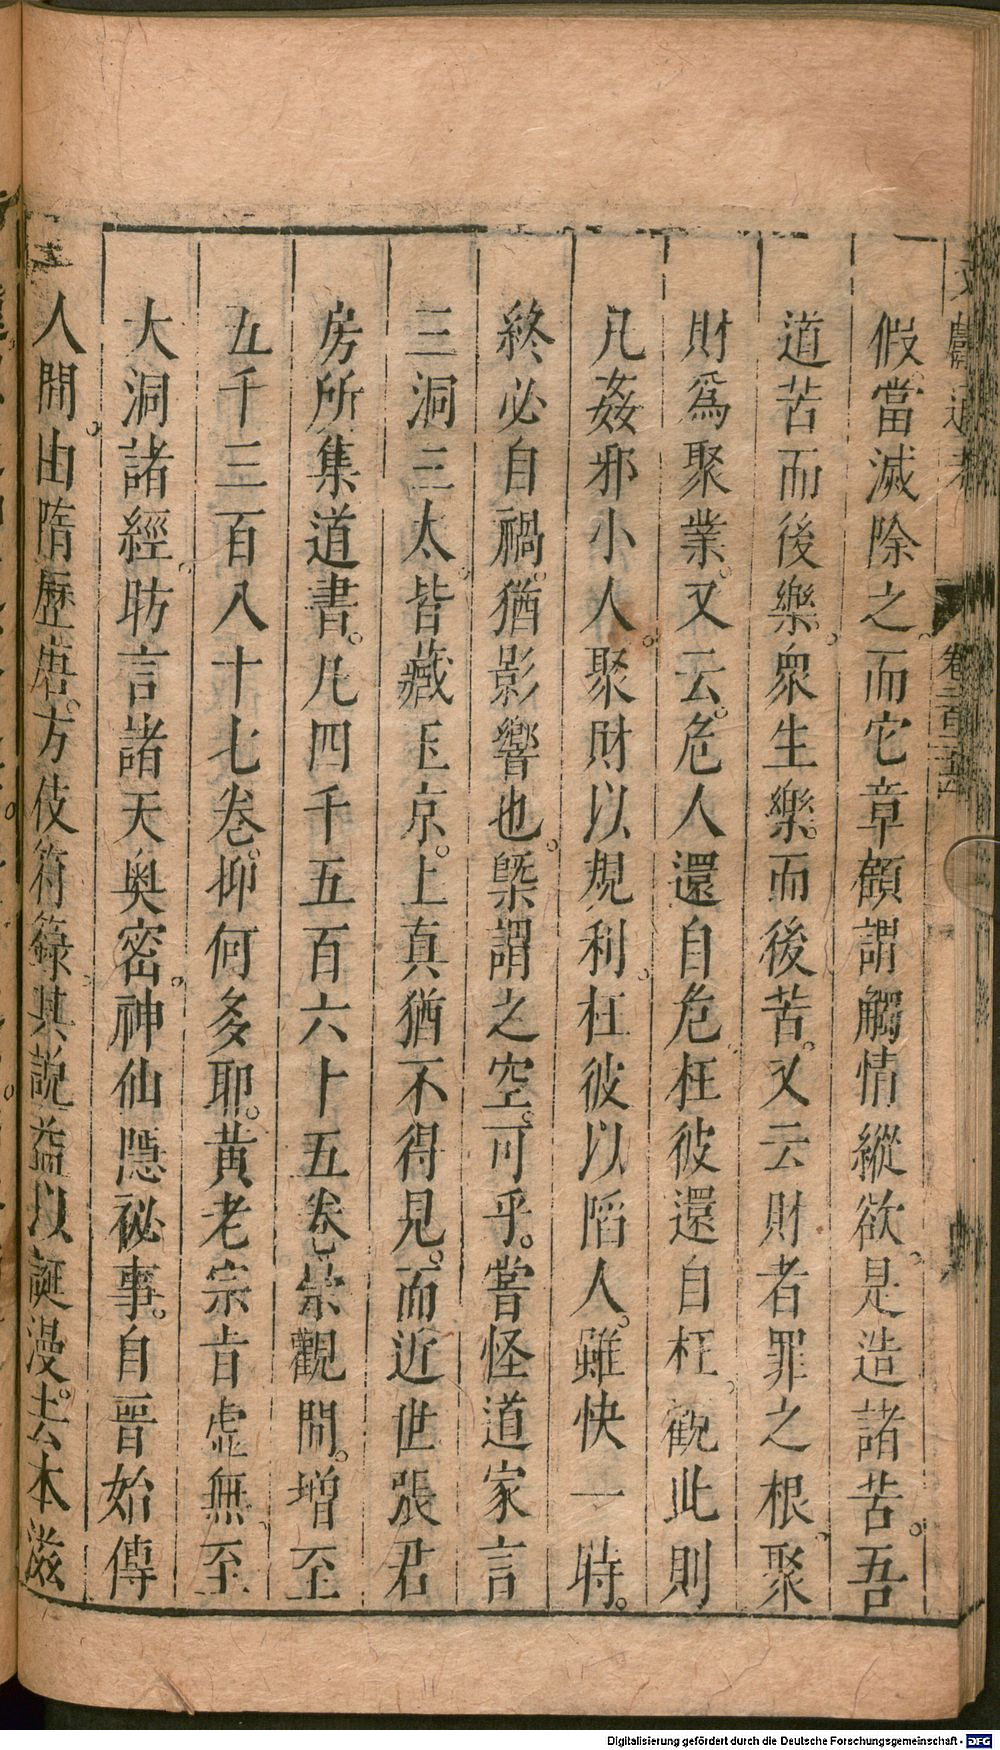 假。當滅除之。而它章顧謂觸情縱欲。是造諸苦。吾
道苦而後樂。衆生樂。而後苦。又云財者罪之根。聚
財爲聚業。又云。危人還自危。枉彼還自枉。觀此則
凡姦邪小人。聚財以規利。枉彼以陷人。雖快一時。
終必自禍。猶影響也。槩謂之空。可乎。嘗怪道家言
三洞三太。皆藏玉京。上真猶不得見。而近世張君
房所集道書。凡四千五百六十五卷。崇觀間。增至
五千三百八十七卷。抑何多耶。黃老宗旨虛無。至
大洞諸經。昉言諸天奥密。神仙隱祕事。自晉始傳
人間。由隋歷唐。方伎符籙。其説益以誕漫。去本滋
卷二百二十四
Digitalisierung gefördert durch die Deutsche Forschungsgemeinschaft - DFG